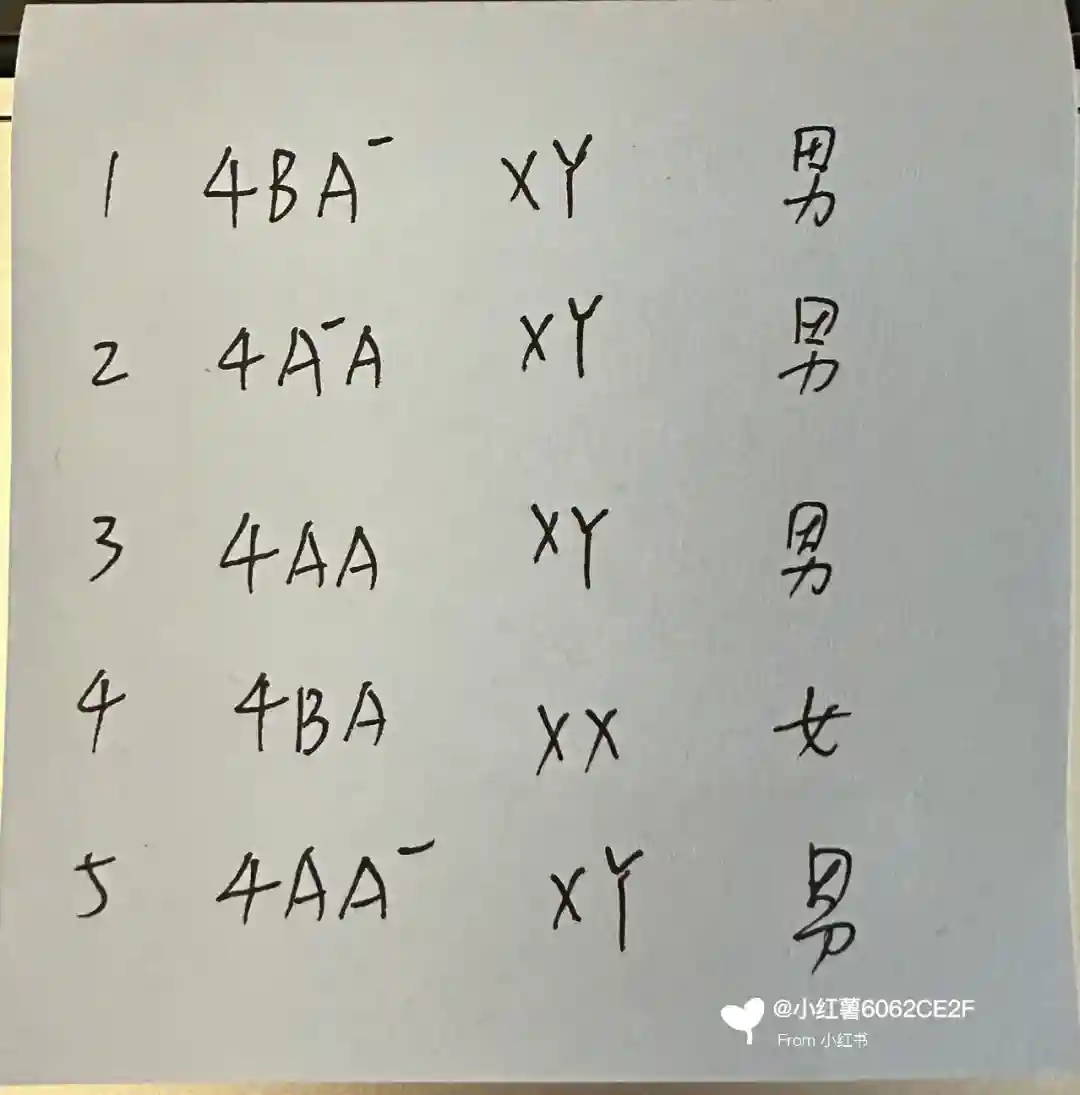 1 4BA⁻ XY 男
2 4A⁻A XY 男
3 4AA XY 男
4 4BA XX 女
5 4AA⁻ XY 男
@小红薯6062CE2F
From 小红书